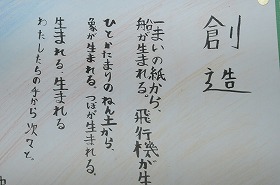 創造
一まいの紙から、
船が生まれる。飛行機が生
ひとかたまりのねん土から、
象が生まれる。つぼが生まれる。
生まれる、生まれる
わたしたちの手から次々と。